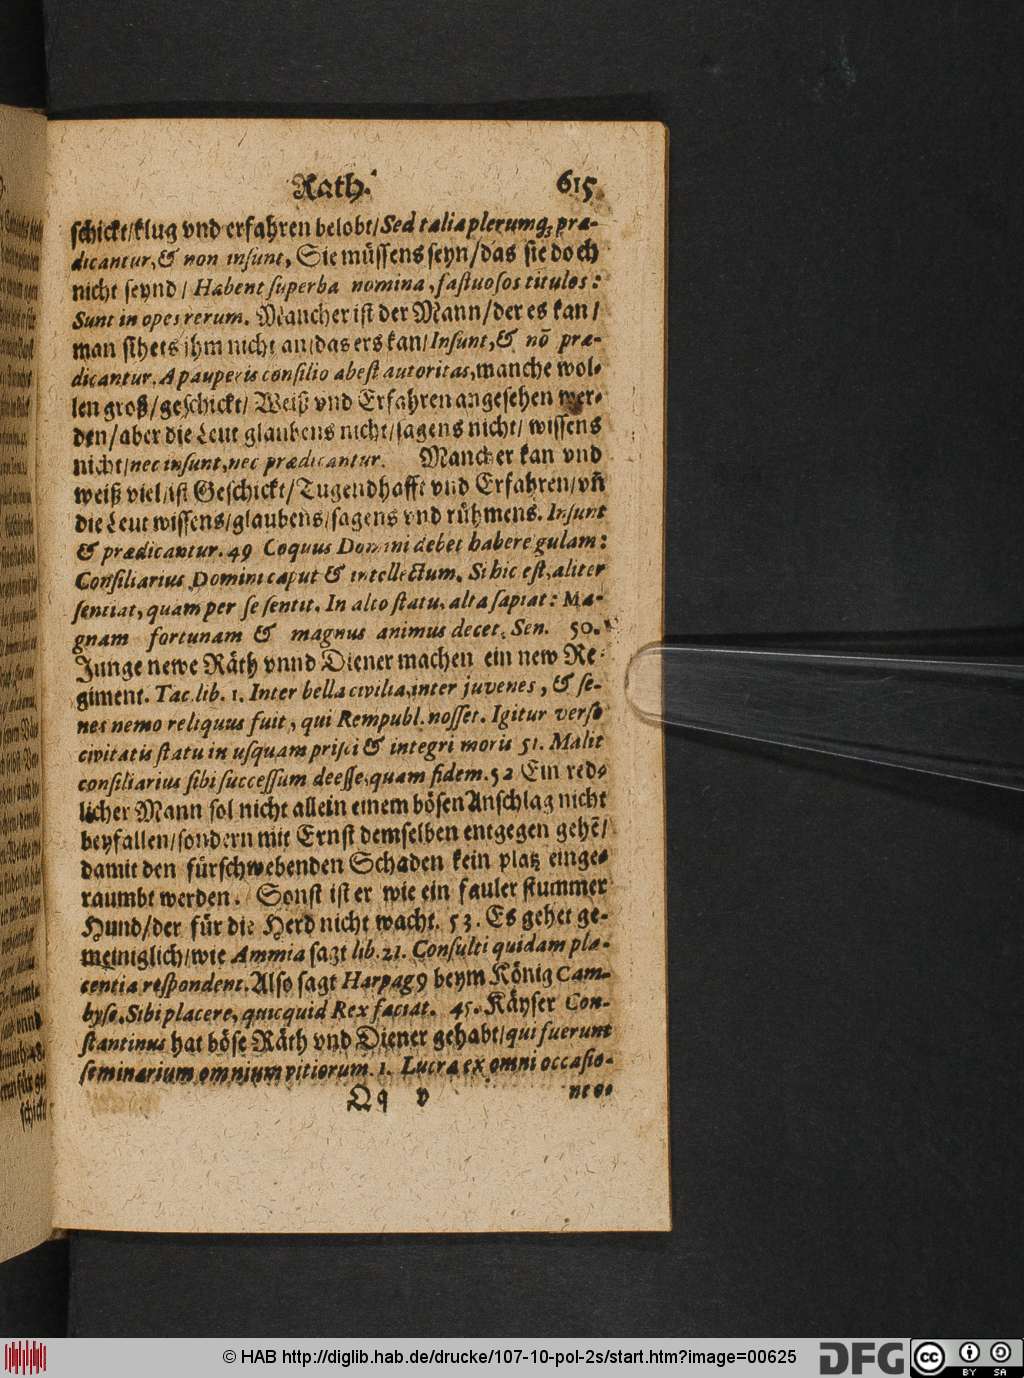 Rath. 615
schickt/klug vnd erfahren belobt/Sed talia plerumq; præ-
dicantur, & non insunt, Sie müssens seyn/das sie doch
nicht seynd/ Habent superba nomina, fastuosos titulos:
Sunt inopes rerum. Mancher ist der Mann/der es kan/
man sihets ihm nicht an/das ers kan/Insunt, & nō præ-
dicantur. A pauperis consilio abest autoritas, manche wol-
len groß/geschickt/ Weiß vnd Erfahren angesehen wer-
den/aber die Leut glaubens nicht/sagens nicht/ wissens
nicht/nec insunt, nec prædicantur. Mancher kan vnd
weiß viel/ist Geschickt/Tugendhafft vnd Erfahren/vñ
die Leut wissens/glaubens/sagens vnd rühmens. Insunt
& prædicantur. 49 Coquus Domini debet habere gulam:
Consiliarius Domini caput & intellectum. Si hic est, aliter
sentiat, quam per se sentit. In alto statu, alta sapiat: Ma-
gnam fortunam & magnus animus decet. Sen. 50.
Junge newe Räth vnnd Diener machen ein new Re-
giment. Tac. lib. 1. Inter bella civilia, inter juvenes, & se-
nes nemo reliquus fuit, qui Rempubl. nosset. Igitur verso
civitatis statu in usquam prisci & integri moris 51. Malit
consiliarius sibi successum deesse, quam fidem. 52 Ein red-
licher Mann sol nicht allein einem bösen Anschlag nicht
beyfallen/sondern mit Ernst demselben entgegen gehē/
damit den fürschwebenden Schaden kein platz einge-
raumbt werden. Sonst ist er wie ein fauler stummer
Hund/der für die Herd nicht wacht. 53. Es gehet ge-
meiniglich/wie Ammia sagt lib. 21. Consulti quidam pla-
centia respondent. Also sagt Harpag9 beym König Cam-
byse. Sibi placere, quicquid Rex faciat. 45. Käyser Con-
stantinus hat böse Räth vnd Diener gehabt/qui fuerunt
seminarium omnium vitiorum. 1. Lucra ex omni occasio-
Qq v ne
© HAB http://diglib.hab.de/drucke/107-10-pol-2s/start.htm?image=00625
DFG
cc BY SA